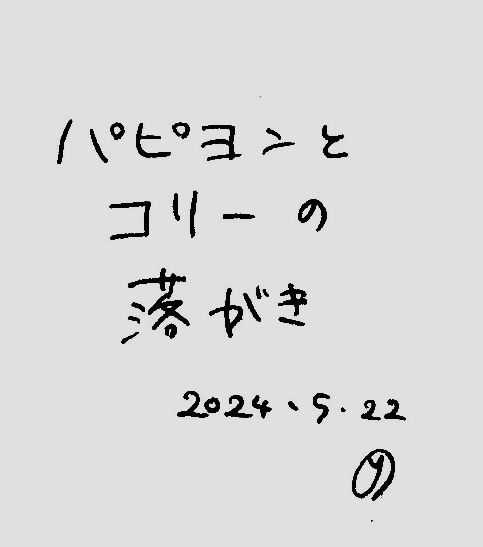 パピヨンと
コリーの
落がき
2024、5.22